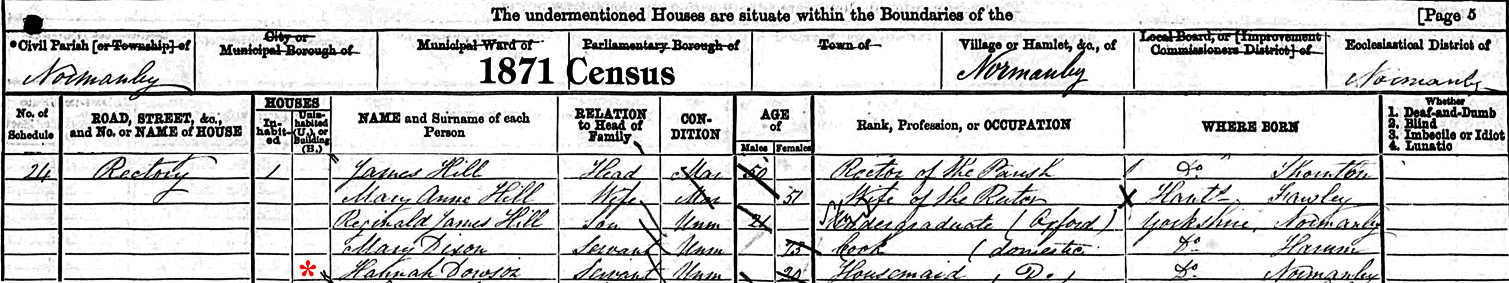 The undermentioned Houses are situate within the Boundaries of the [Page 5
*Civil Parish [or Township] of City or Municipal Borough of Municipal Ward of Parliamentary Borough of Town of Village or Hamlet, &c., of Local Board, or [Improvement Commissioners District] of Ecclesiastical District of
Normanby 1871 Census Normanby Normanby
No. of Schedule ROAD, STREET, &c., and No. or NAME of HOUSE HOUSES Inhabited Uninhabited (U.), or Building (B.) NAME and Surname of each Person RELATION to Head of Family CONDITION AGE of Males Females Rank, Profession, or OCCUPATION WHERE BORN Whether 1. Deaf-and-Dumb 2. Blind 3. Imbecile or Idiot 4. Lunatic
24 Rectory 1 James Hill Head Mar 50 Rector of the Parish Do Thornton
Mary Anne Hill Wife Mar 51 Wife of the Rector Hants Fawley
Reginald James Hill Son Unm 21 Undergraduate (Oxford) Yorkshire, Normanby
Mary Dixon Servant Unm Cook (domestic Do Harum
* Hannah Dowson Servant Unm 20 Housemaid (Do) Do Normanby